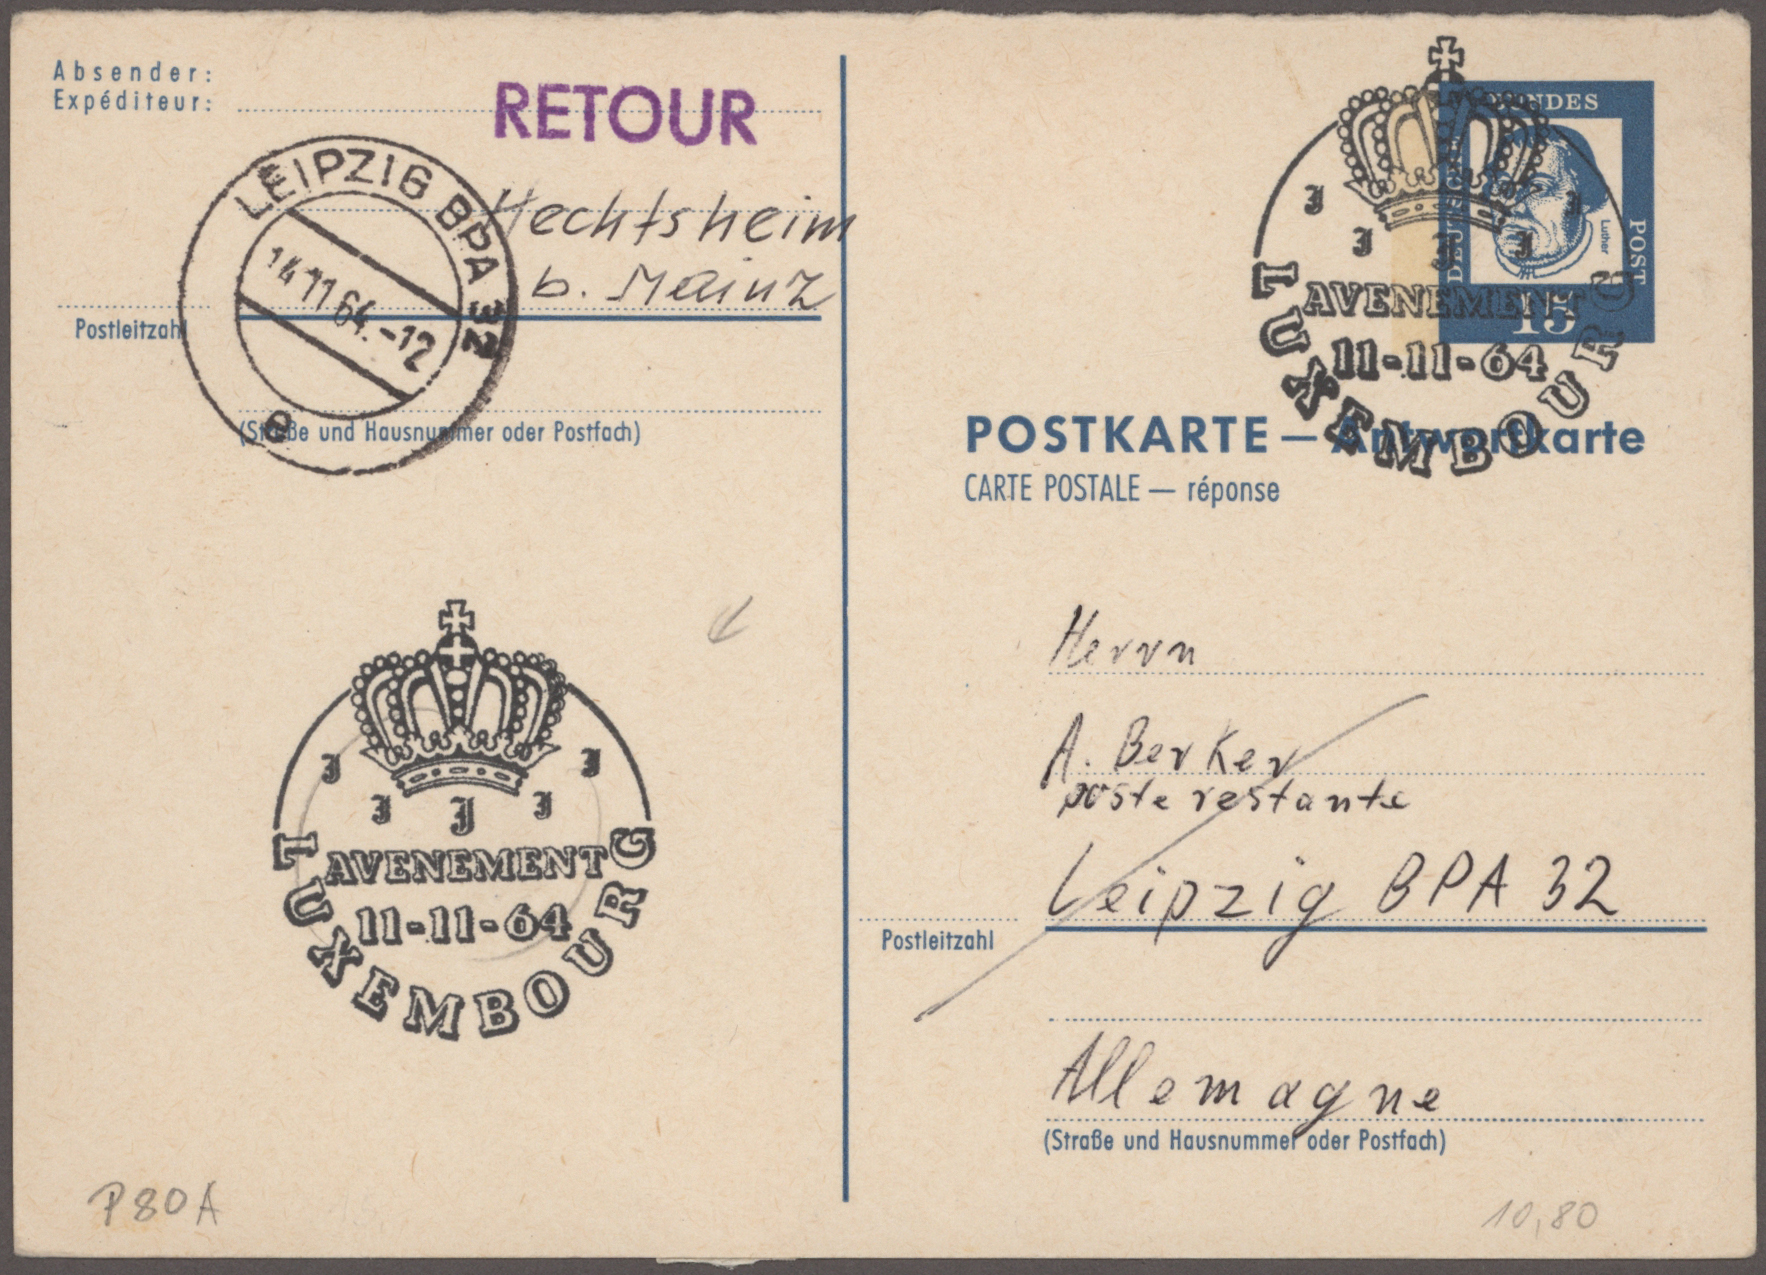 Absender:
Expéditeur:
RETOUR
Hechtsheim
b. Mainz
Postleitzahl
(Straße und Hausnummer oder Postfach)
LEIPZIG BPA 32
14.11.64.-12
e
J J J J J
AVENEMENT
11-11-64
LUXEMBOURG
P80A
DEUTSCHE BUNDESPOST
Luther
15
J J J J J
AVENEMENT
11-11-64
LUXEMBOURG
POSTKARTE — Antwortkarte
CARTE POSTALE — réponse
Herrn
A. Berker
poste restante
Leipzig BPA 32
Postleitzahl
Allemagne
(Straße und Hausnummer oder Postfach)
10,80